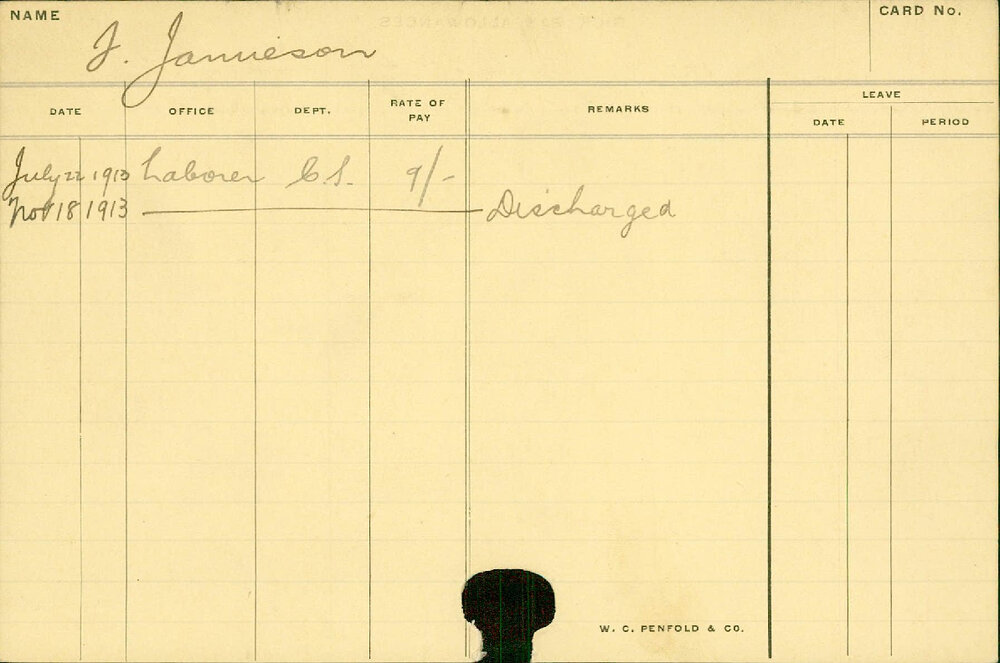 NAME
J. Jamieson
CARD No.
DATE OFFICE DEPT. RATE OF PAY REMARKS LEAVE
DATE PERIOD
July 22 1913 Laborer C.S. 9/-
Nov 18 1913 Discharged
W. C. PENFOLD & CO.